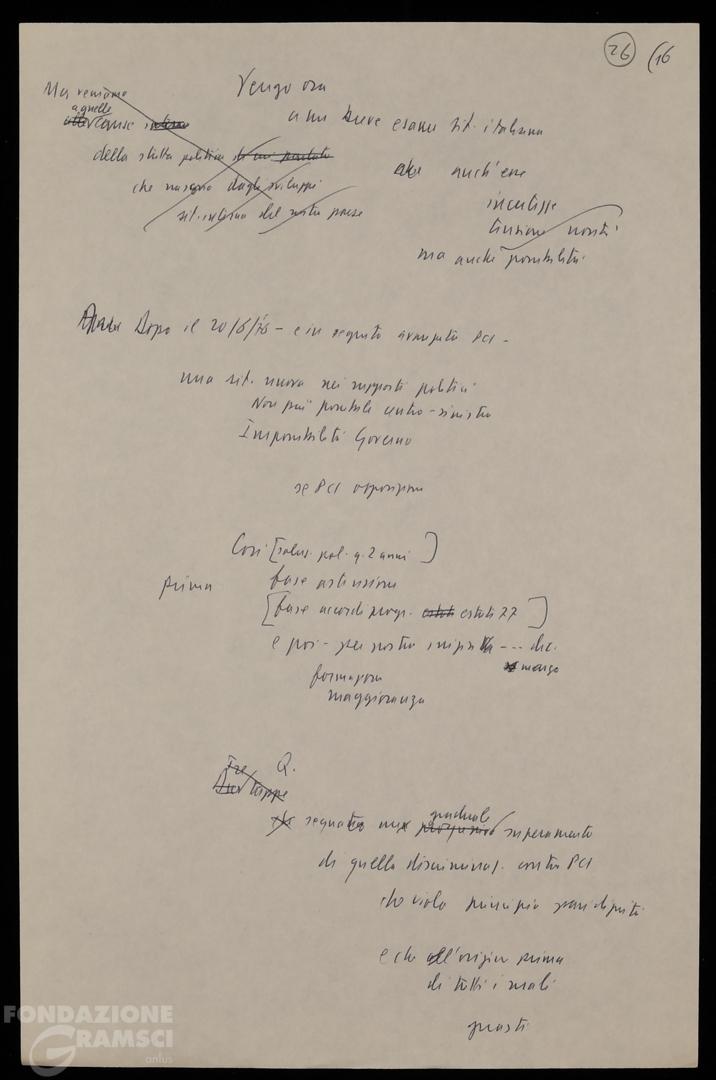 26 (16
Vengo ora
a un breve esame sit. italiana
Ma veniamo
a quelle
cause interne
della stretta politica
che nascono dagli sviluppi
sit. interna del nostro paese
che anch'essa
incertezze
tensione novità
ma anche possibilità
Dopo il 20/6/76 - e in seguito avanzata PCI -
una sit. nuova nei rapporti politici
Non più possibile centro-sinistra
Impossibilità Governo
se PCI opposizione
Così [ pol. q. 2 anni ]
prima base astensioni
[base accordi progr. estate estate 77]
e poi - per nostra --- dic.
marzo
formazione
maggioranza
Tre Q.
Due tappe
segnato un graduale
progressivo superamento
di quella discriminaz. contro PCI
che viola principio pari dignità
e che all'origine prima
di tutti i mali
guasti
FONDAZIONE
GRAMSCI
onlus